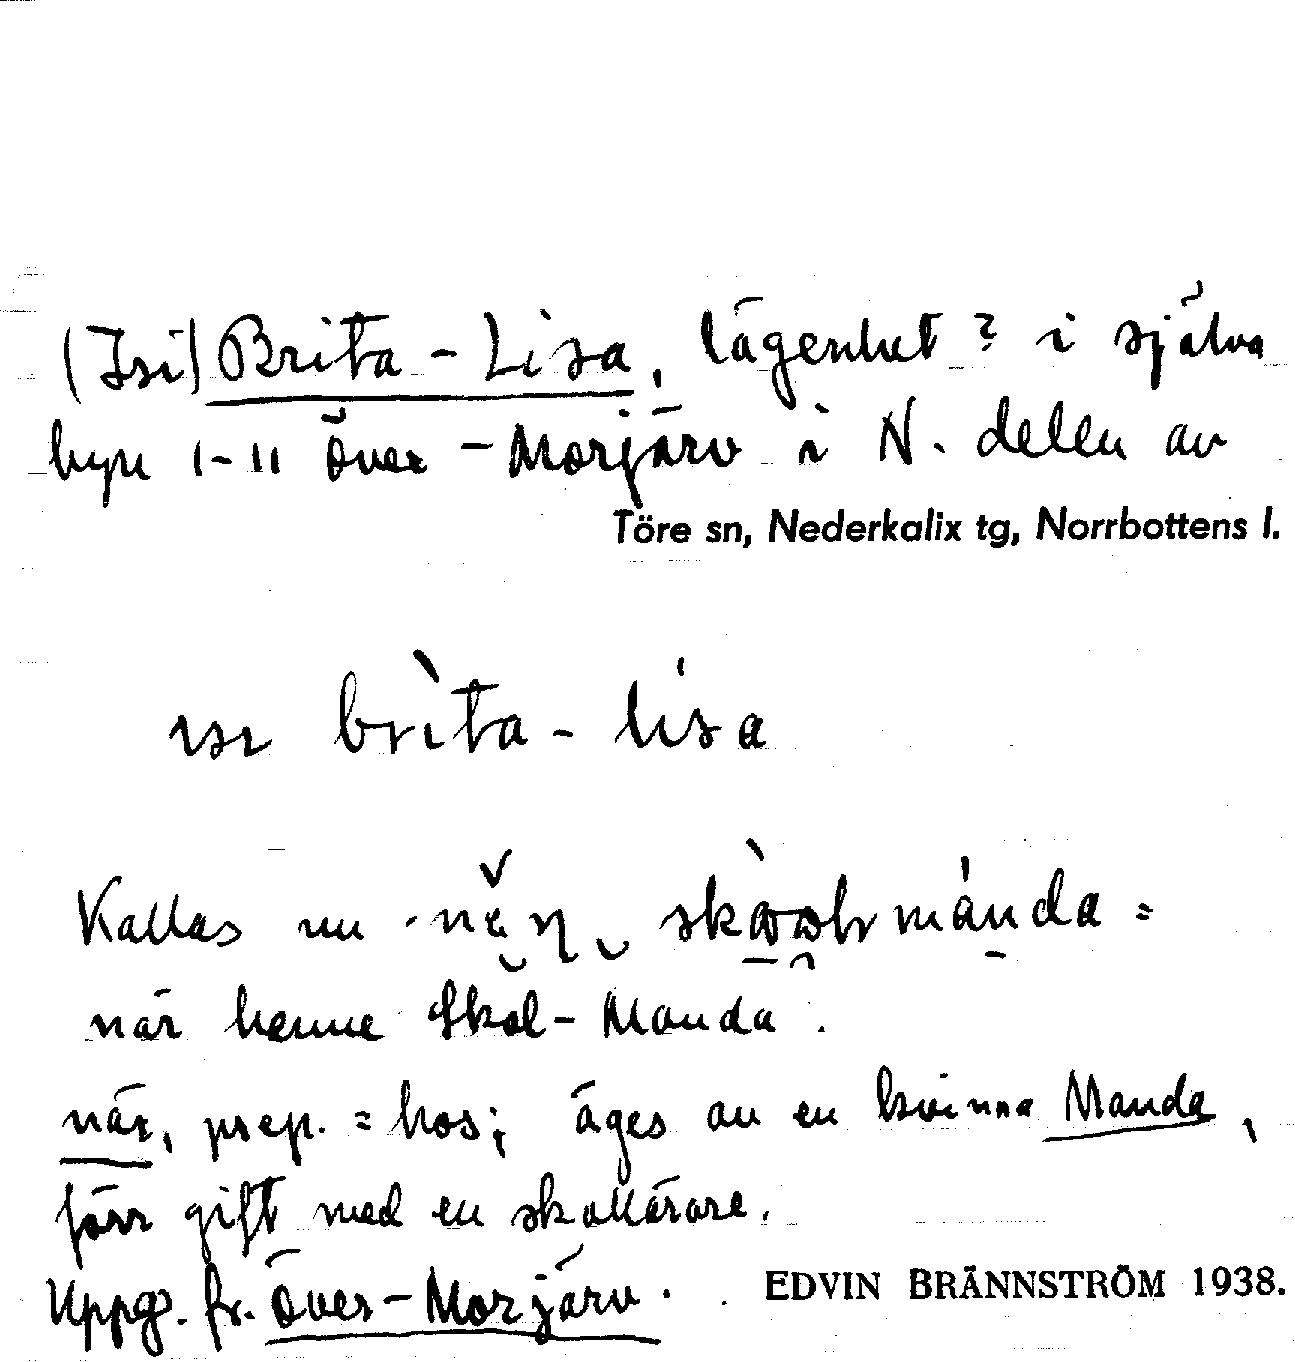 (Isi) Brita-Lisa, lägenhet? i själva
byn 1-11 Över-Morjärv i N. delen av
Töre sn, Nederkalix tg, Norrbottens l.
ısı brìta-lísa
Kallas nu
när henne Skol-Manda.
när, prep. = hos; äges av en kvinna Manda,
förr gift med en skollärare.
Uppg. fr. Över-Morjärv.
EDVIN BRÄNNSTRÖM 1938.